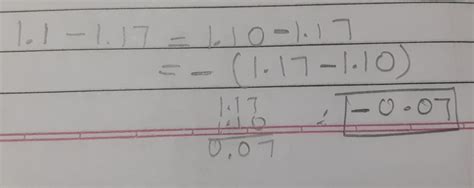 1.1 - 1.17 = 1.10 - 1.17
= - (1.17 - 1.10)
1.17
1.10
0.07 ∴ -0.07